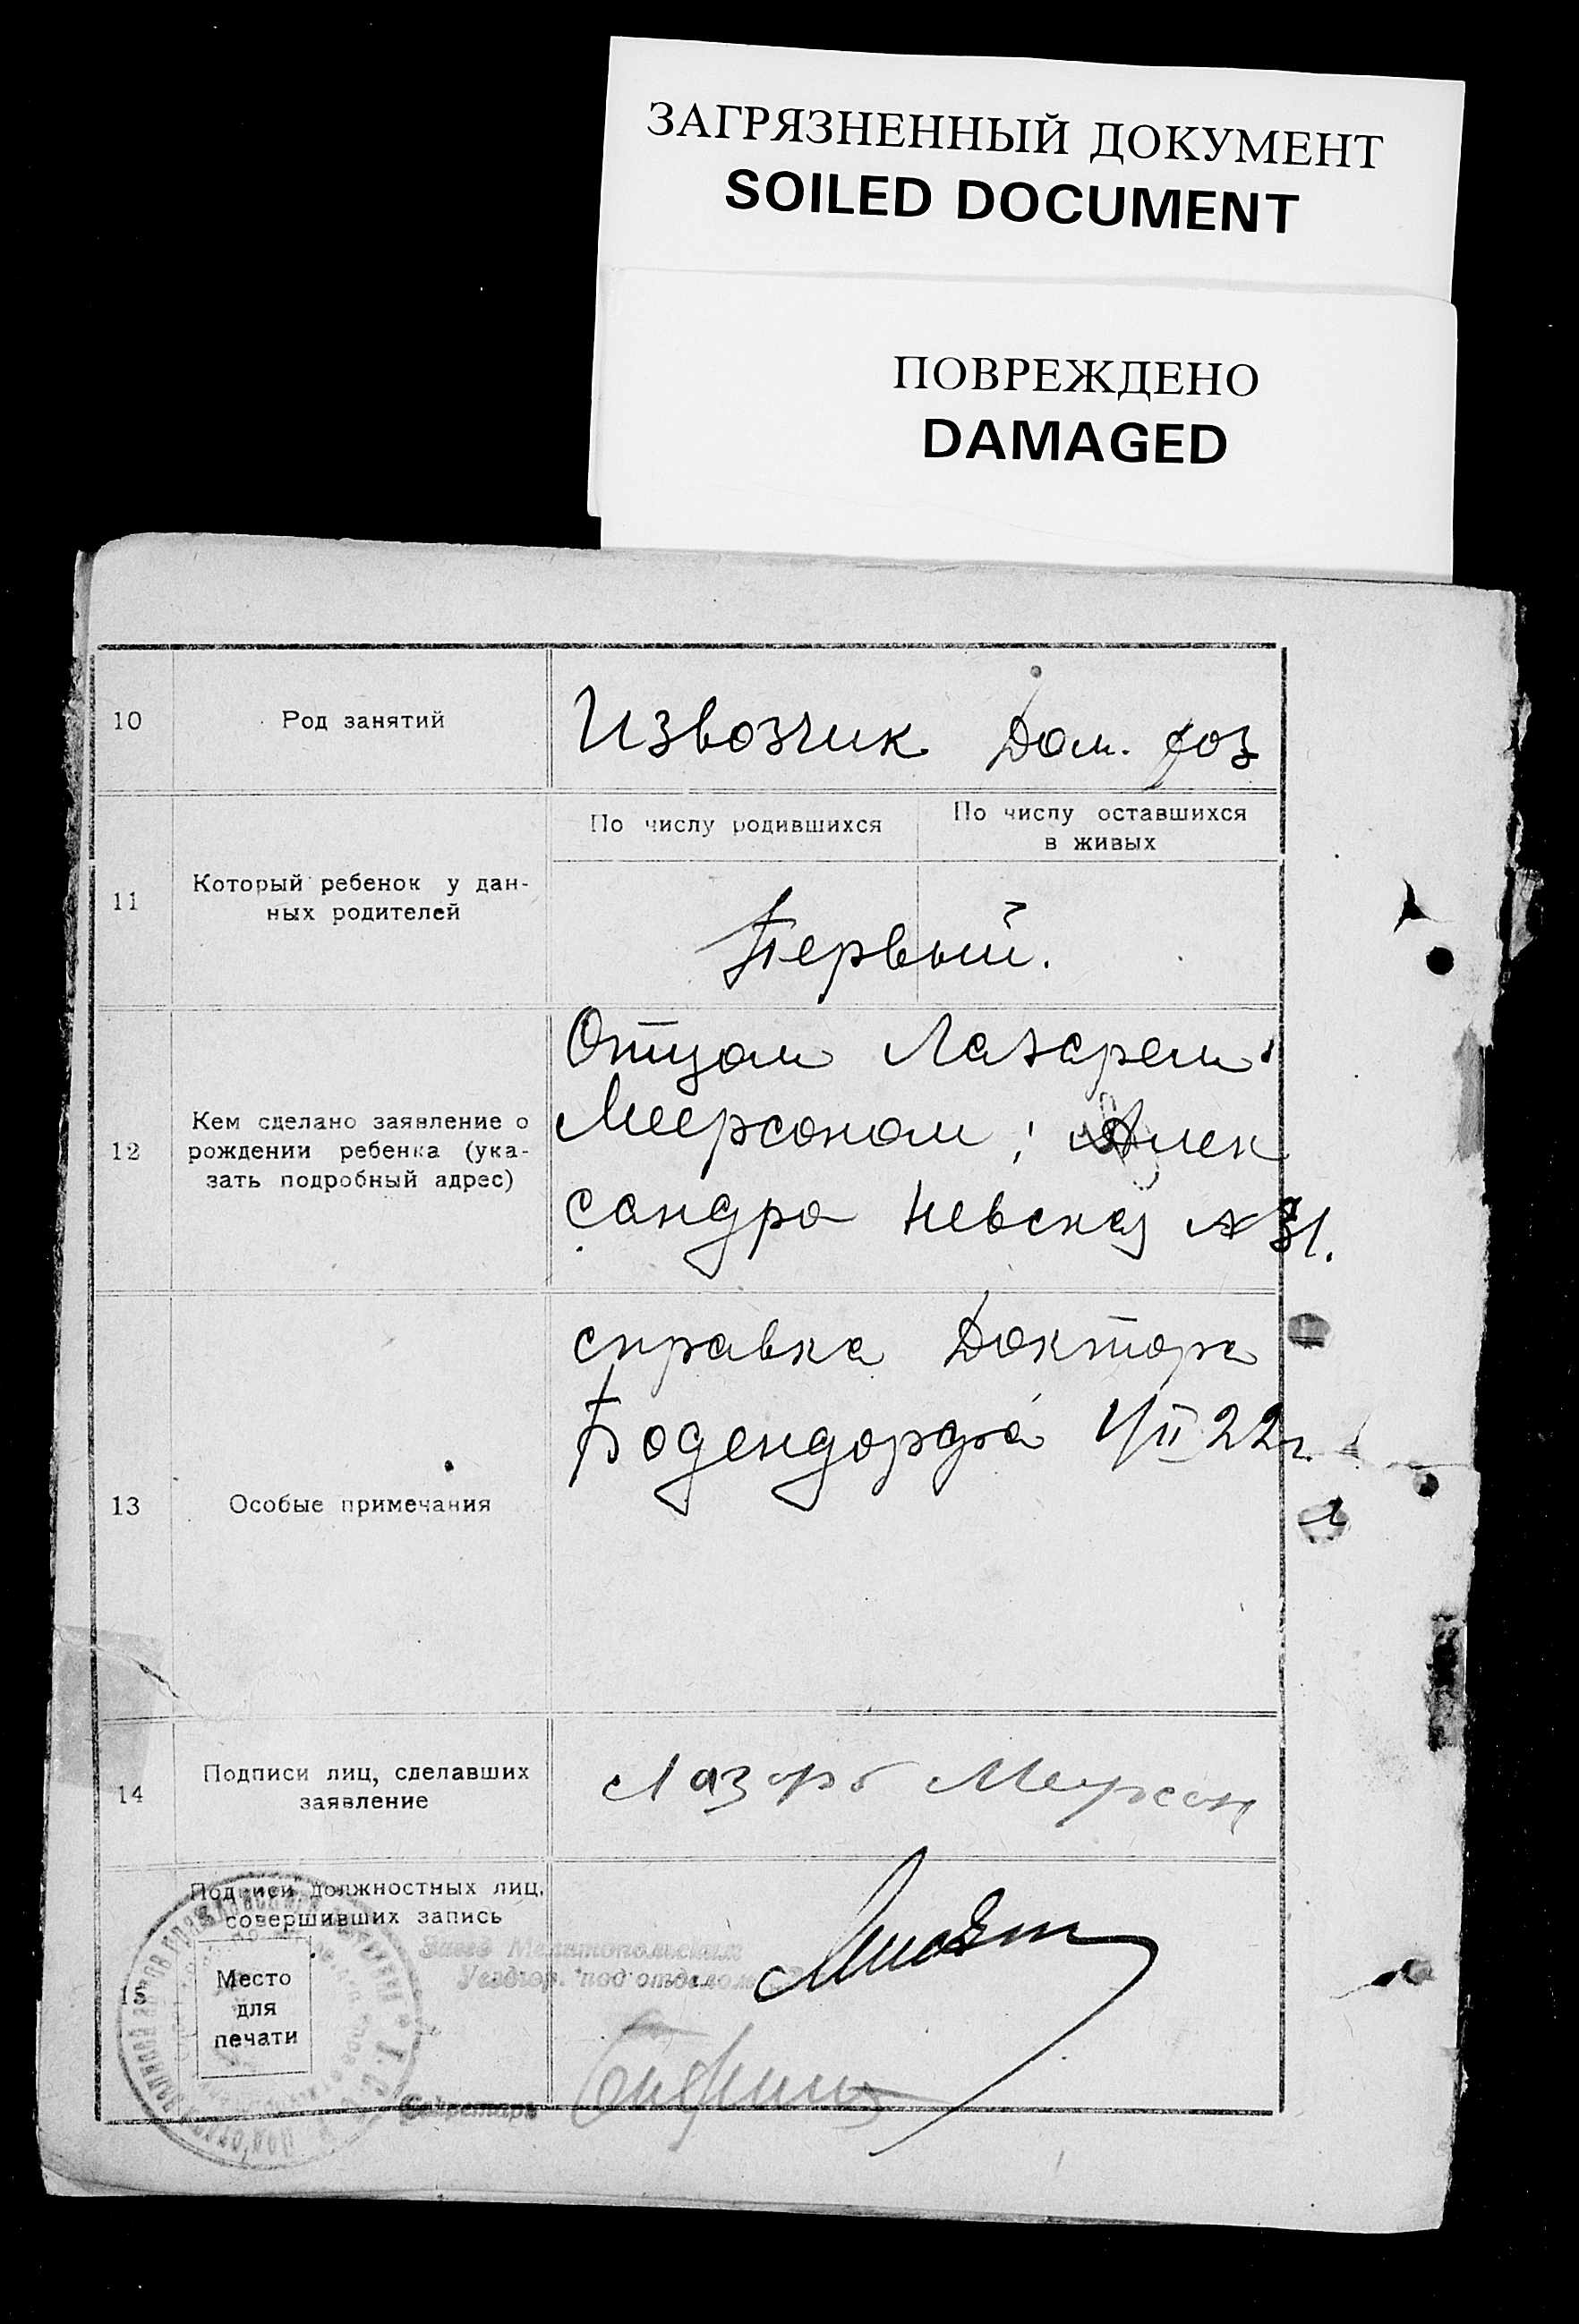 ЗАГРЯЗНЕННЫЙ ДОКУМЕНТ
SOILED DOCUMENT
ПОВРЕЖДЕНО
DAMAGED
10 Род занятий Извозчик Дом. хоз
По числу родившихся По числу оставшихся
в живых
11 Который ребенок у дан-
ных родителей
Первый.
12 Кем сделано заявление о
рождении ребенка (ука-
зать подробный адрес)
Отцом Лазарем
Меерсоном; Алек
сандро Невская № 31.
13 Особые примечания
справка Доктора
Бодендорфа 1/II 22 г.
14 Подписи лиц, сделавших
заявление
Лазарь Меерсон
15 Подписи должностных лиц,
совершивших запись
Завед Мелитопольским
Уездгор. под отделом
Место
для
печати
Секретарь